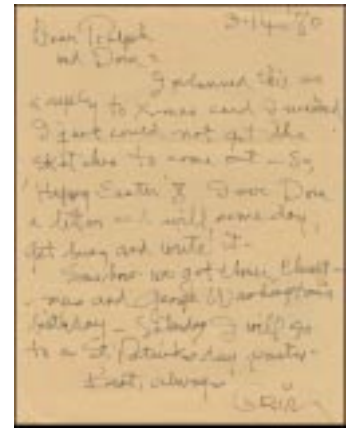 3-14-80
Dear Ralph
and Dora =
I planned this as
a reply to X-mas card I
I just could not get the
sketches to come out - So,
"Happy Easter"! I owe Dora
a letter and will, some day,
get busy and write it.
Somehow we got thru Christ-
mas and George Washington's
birthday - Saturday I will go
to a St. Patrick's day party -
Best, always